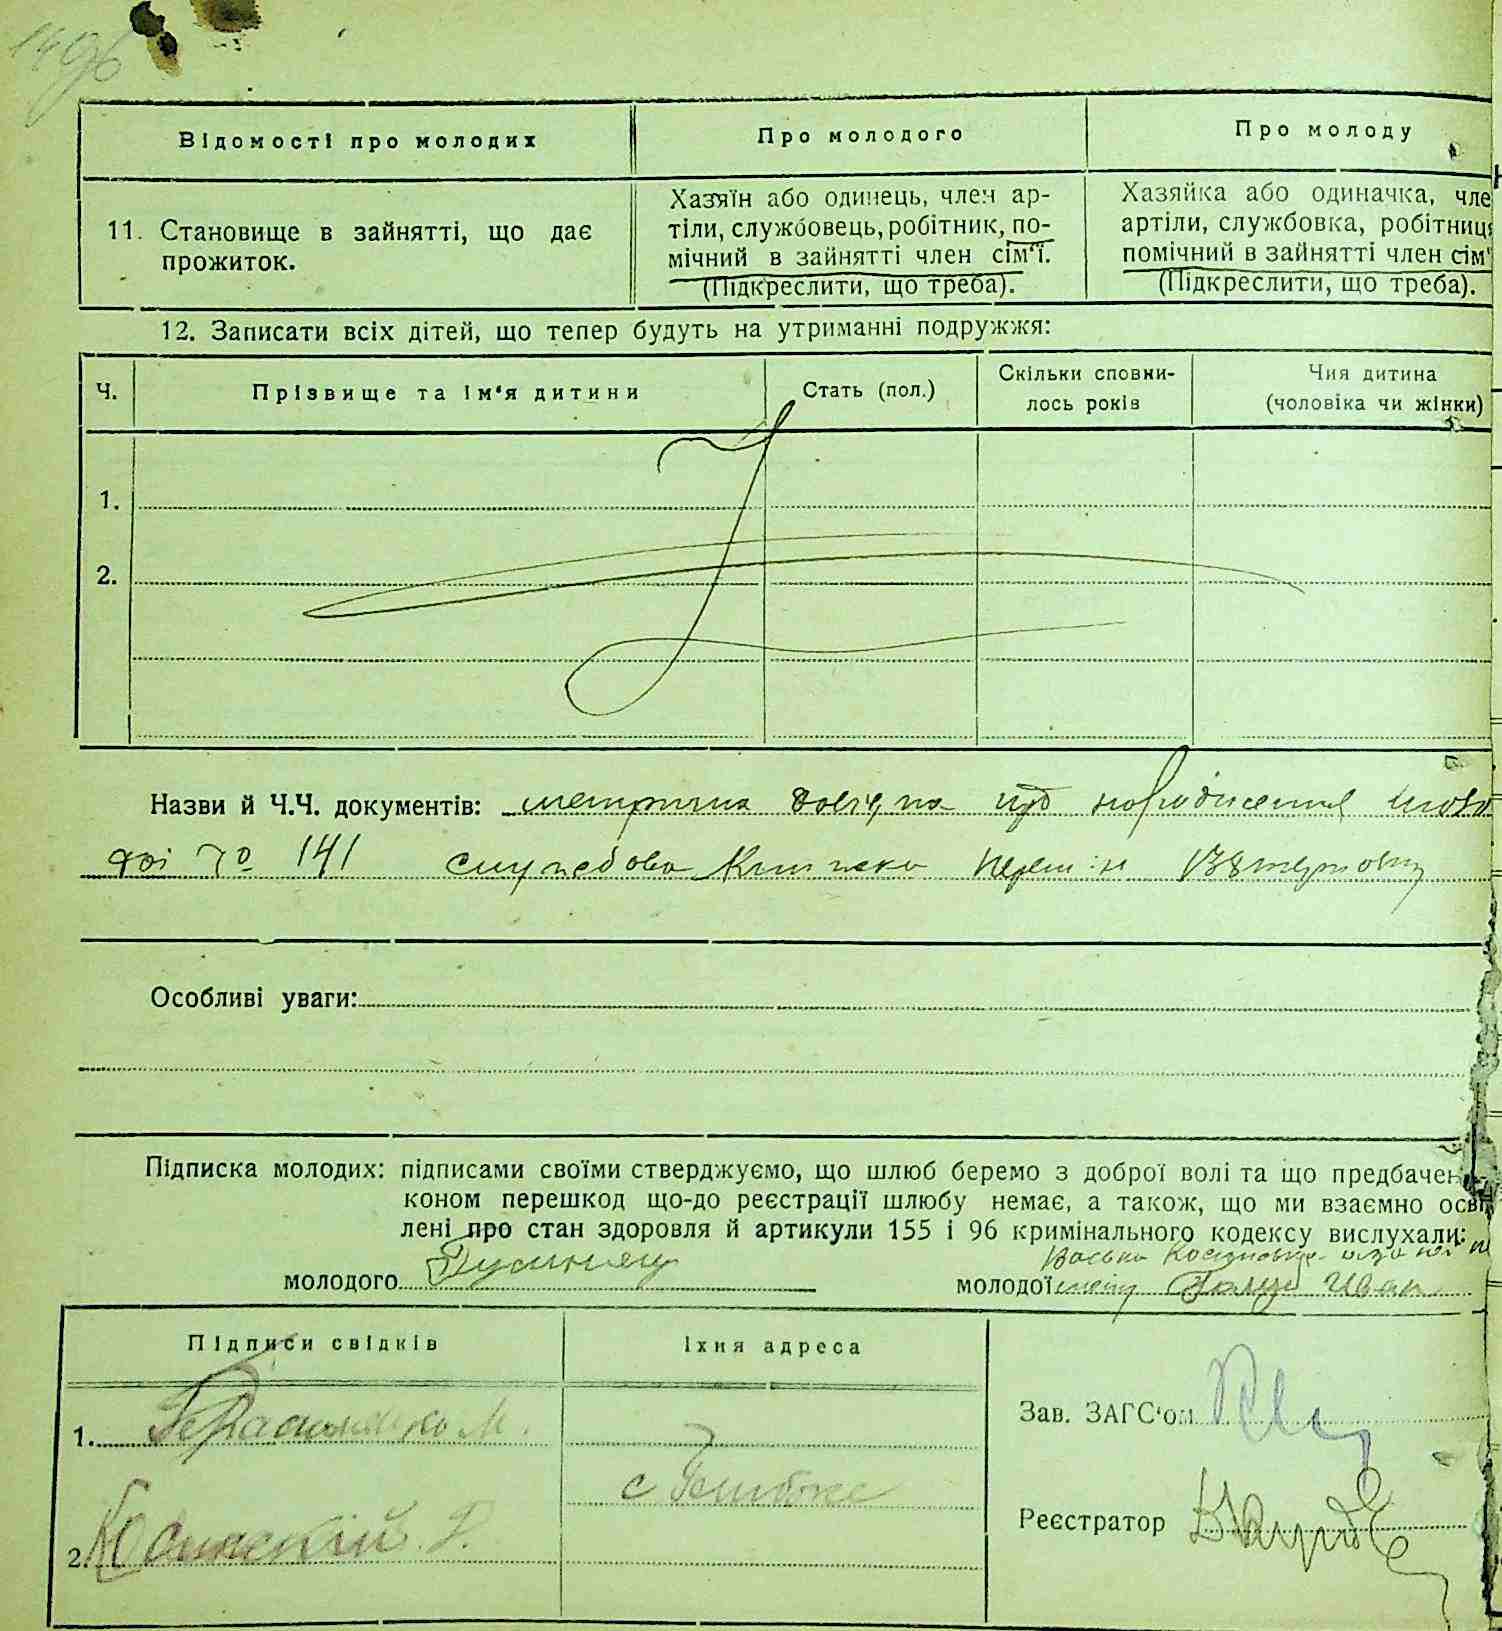 1496
Відомості про молодих
Про молодого
Про молоду
11. Становище в зайнятті, що дає
прожиток.
Хазяїн або одинець, член ар-
тіли, службовець, робітник, по-
мічний в зайнятті член сім'ї.
(Підкреслити, що треба).
Хазяйка або одиначка, чле
артіли, службовка, робітниця
помічний в зайнятті член сім'
(Підкреслити, що треба).
12. Записати всіх дітей, що тепер будуть на утриманні подружжя:
Ч.
Прізвище та ім'я дитини
Стать (пол.)
Скільки сповни-
лось років
Чия дитина
(чоловіка чи жінки)
1.
2.
Назви й Ч.Ч. документів: метрична про народження моло
дої № 141 службова книжка
Особливі уваги:
Підписка молодих: підписами своїми стверджуємо, що шлюб беремо з доброї волі та що предбачен
коном перешкод що-до реєстрації шлюбу немає, а також, що ми взаємно осві
лені про стан здоровля й артикули 155 і 96 кримінального кодексу вислухали:
молодого
молодої Іван
Підписи свідків
Їхня адреса
1. Герасименко М.
2. Косинский
с
Зав. ЗАГС'ом
Реєстратор